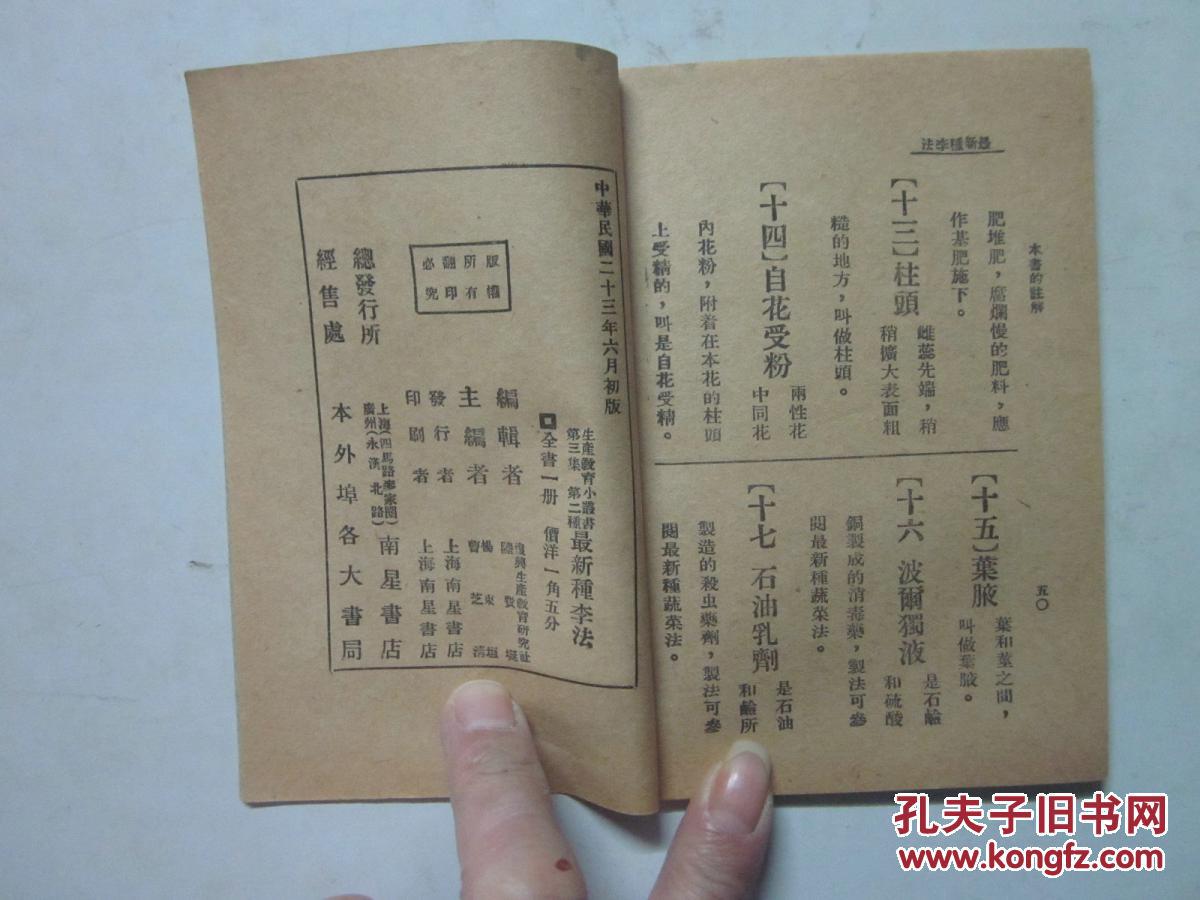 最新種李法
本書的註解
五〇
肥堆肥，腐爛慢的肥料，應
作基肥施下。
【十三】柱頭
雌蕊先端，稍
稍擴大表面粗
糙的地方，叫做柱頭。
【十四】自花受粉
兩性花
中同花
內花粉，附着在本花的柱頭
上受精的，叫是自花受精。
【十五】葉腋
葉和莖之間，
叫做葉腋。
【十六 波爾獨液
是石鹼
和硫酸
銅製成的消毒藥，製法可參
閱最新種蔬菜法。
【十七 石油乳劑
是石油
和鹼所
製造的殺虫藥劑，製法可參
閱最新種蔬菜法。
中華民國二十三年六月初版
生產教育小叢書
第三集 第二種
最新種李法
全書一册 價洋一角五分
版權
所有
翻印
必究
編輯者
復興生產教育研究社
主編者
楊東垣
曹芝清
發行者 上海南星書店
印刷者 上海南星書店
總發行所
上海(四馬路麥家圈)
廣州(永漢北路)
南星書店
經售處 本外埠各大書局
孔夫子旧书网
www.kongfz.com